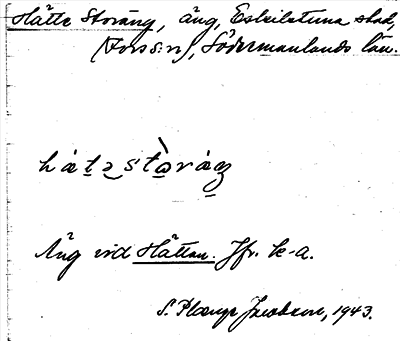 Hätte Storäng, äng, Eskilstuna stad,
(Fors sn), Södermanlands län.
Äng vid Hätten. Jfr. k-a.
S. Plænge Jacobson, 1943.